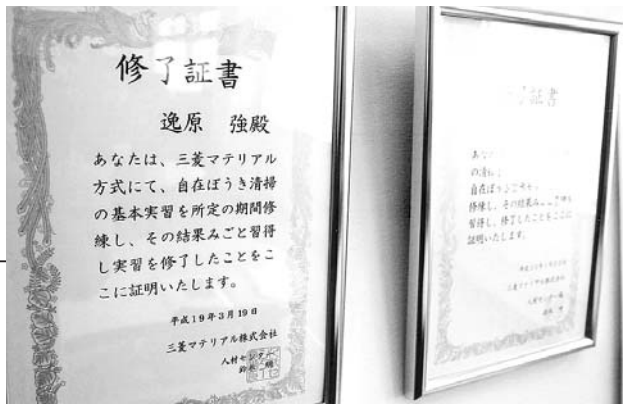 修了証書
逸原 強殿
あなたは、三菱マテリアル
方式にて、自在ぼうき清掃
の基本実習を所定の期間修
練し、その結果みごと習得
し実習を修了したことをこ
こに証明いたします。
平成19年3月19日
三菱マテリアル株式会社
人材センター
鈴木
了証書
自在ぼう
修練し、その結果み
習得し、修了したことをここに
証明いたします。
三菱マテリアル株式会社